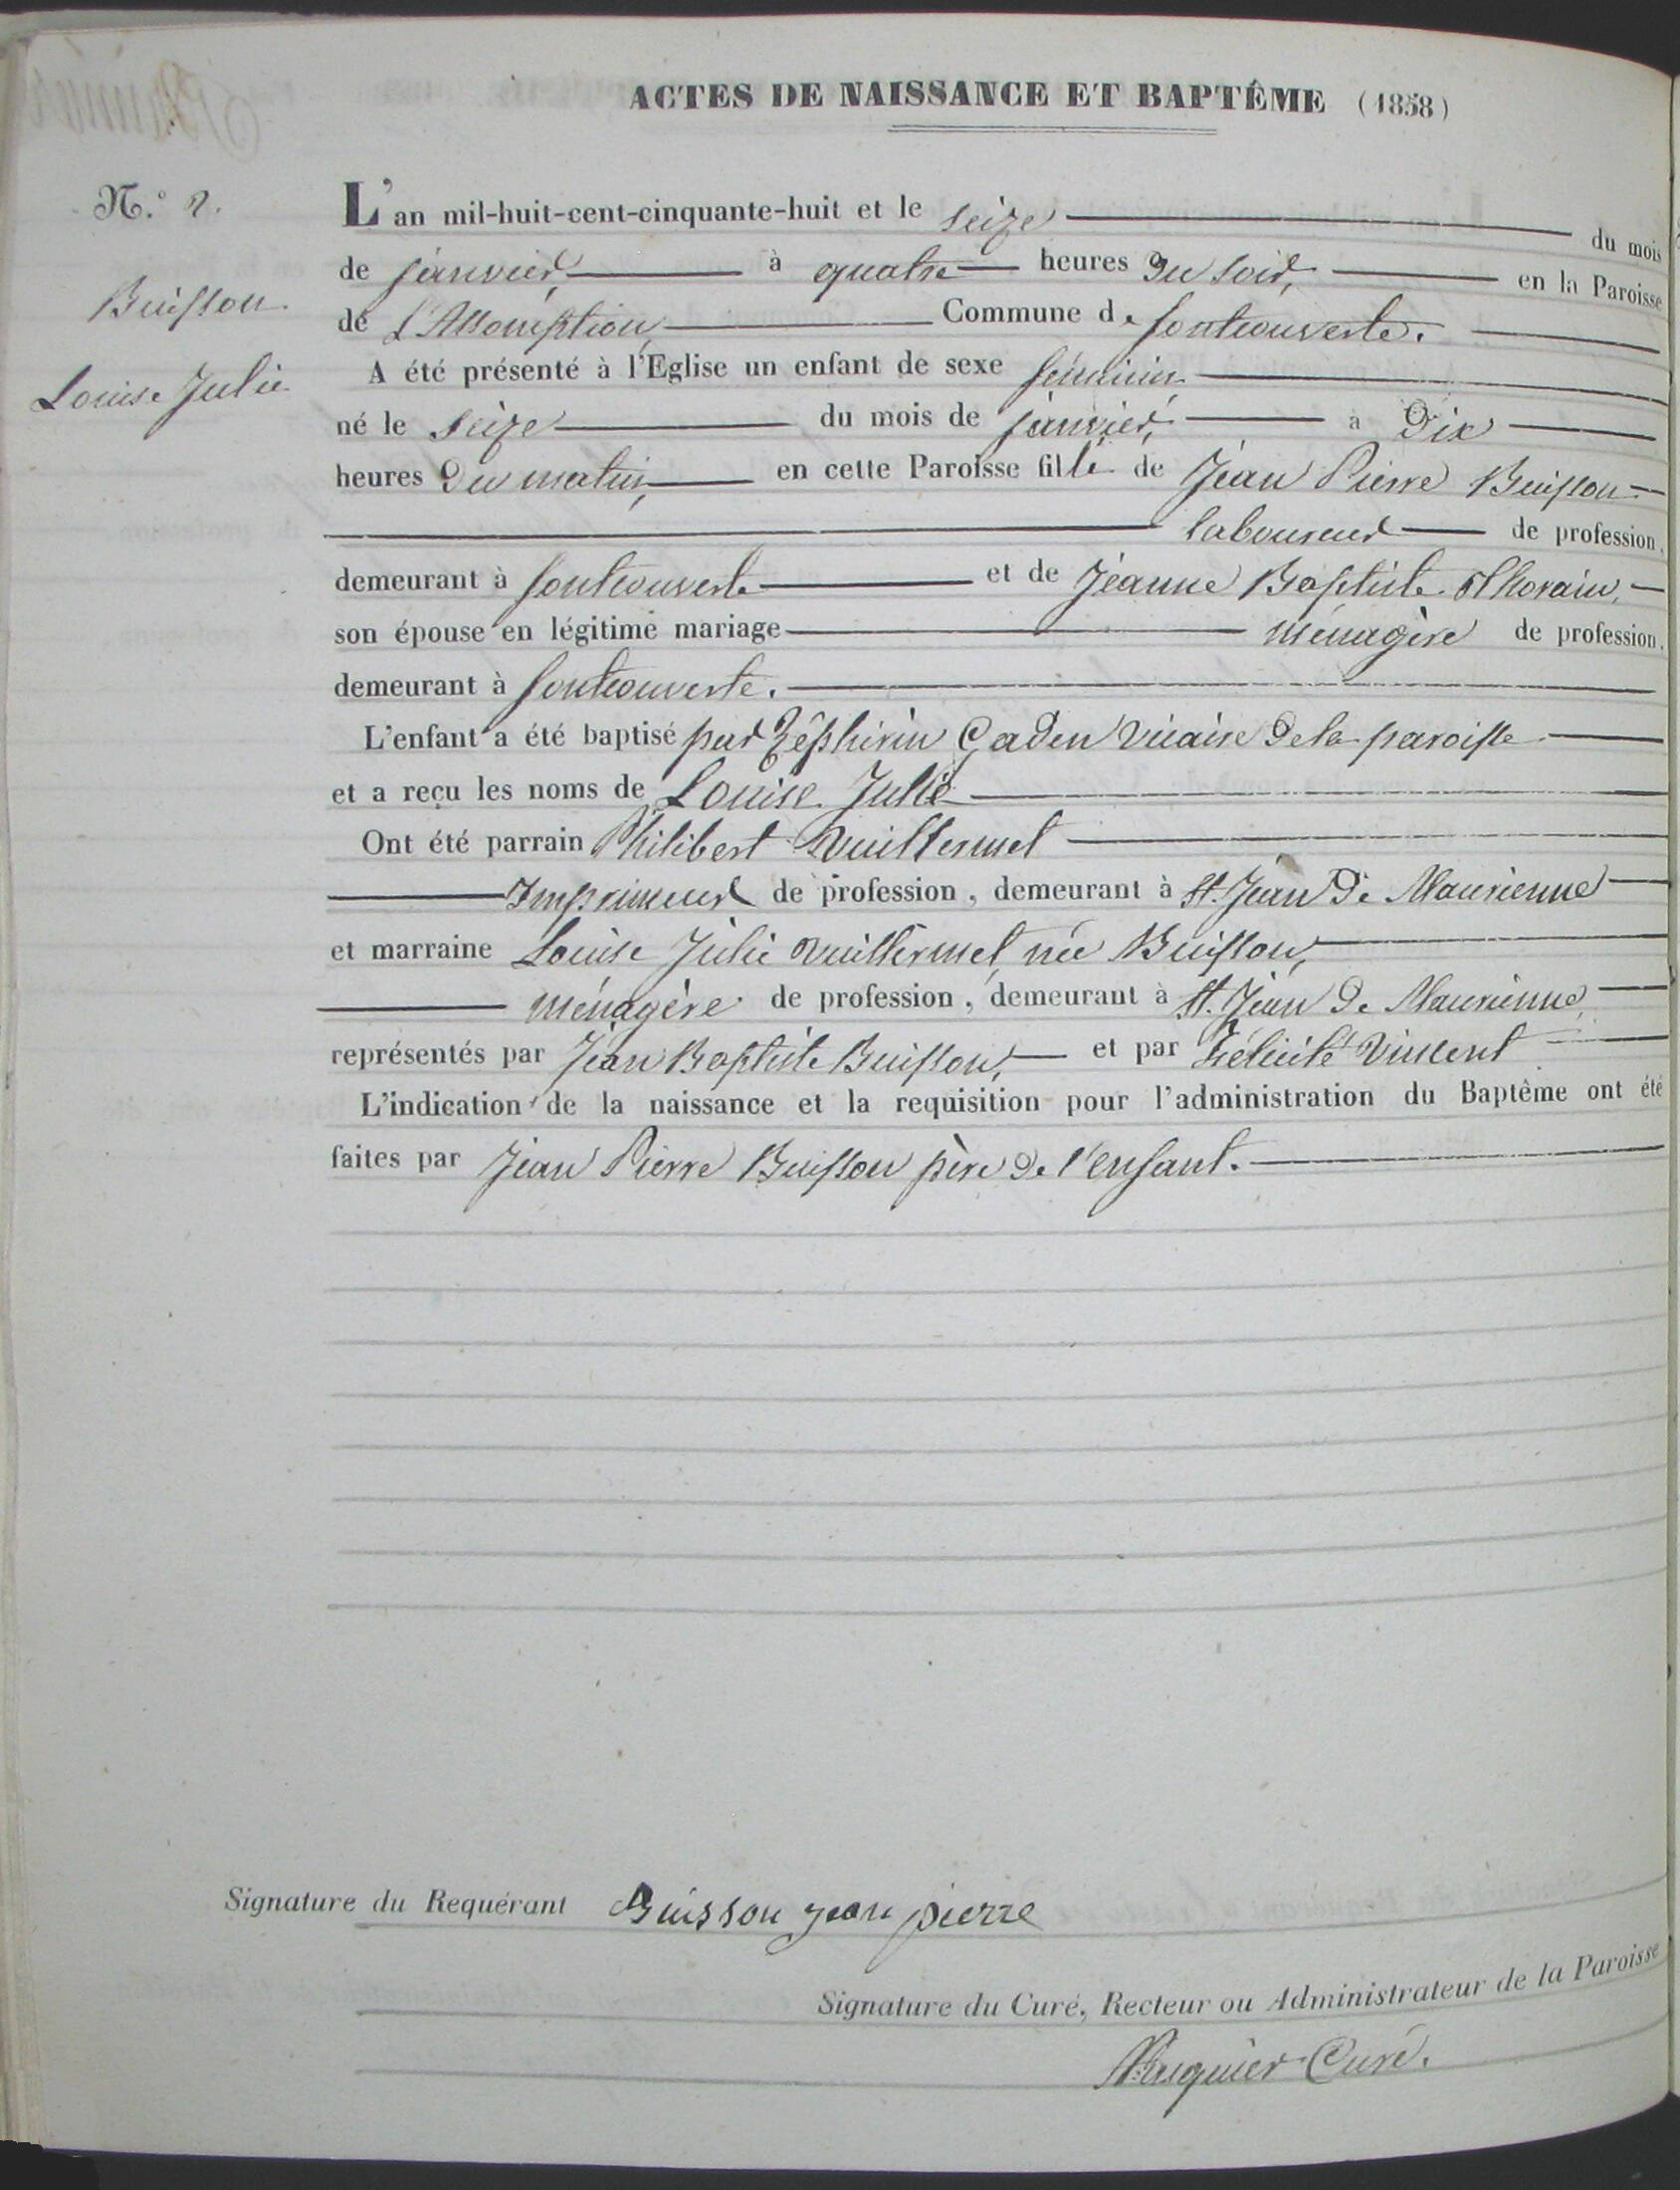 ACTES DE NAISSANCE ET BAPTÊME (1858)
N.° 2.
Buisson
Louise Julie
L'an mil-huit-cent-cinquante-huit et le seize du mois
de janvier, à quatre heures du soir, en la Paroisse
de L'Assomption, Commune de fontcouverte.
A été présenté à l'Eglise un enfant de sexe féminin,
né le seize du mois de janvier, à dix
heures du matin, en cette Paroisse fille de Jean Pierre Buisson
laboureur de profession,
demeurant à fontcouverte et de Jeanne Baptiste
son épouse en légitime mariage ménagère de profession,
demeurant à fontcouverte.
L'enfant a été baptisé par Zéphirin Gaden Vicaire de la paroisse
et a reçu les noms de Louise Julie
Ont été parrain Philibert Vuillermet
Imprimeur de profession, demeurant à St. Jean de Maurienne
et marraine Louise Julie Vuillermet, née Buisson,
ménagère de profession, demeurant à St. Jean de Maurienne,
représentés par Jean Baptiste Buisson, et par Félicité Vincent
L'indication de la naissance et la requisition pour l'administration du Baptême ont été
faites par Jean Pierre Buisson père de l'enfant.
Signature du Requérant Buisson jean pierre
Signature du Curé, Recteur ou Administrateur de la Paroisse
Curé.